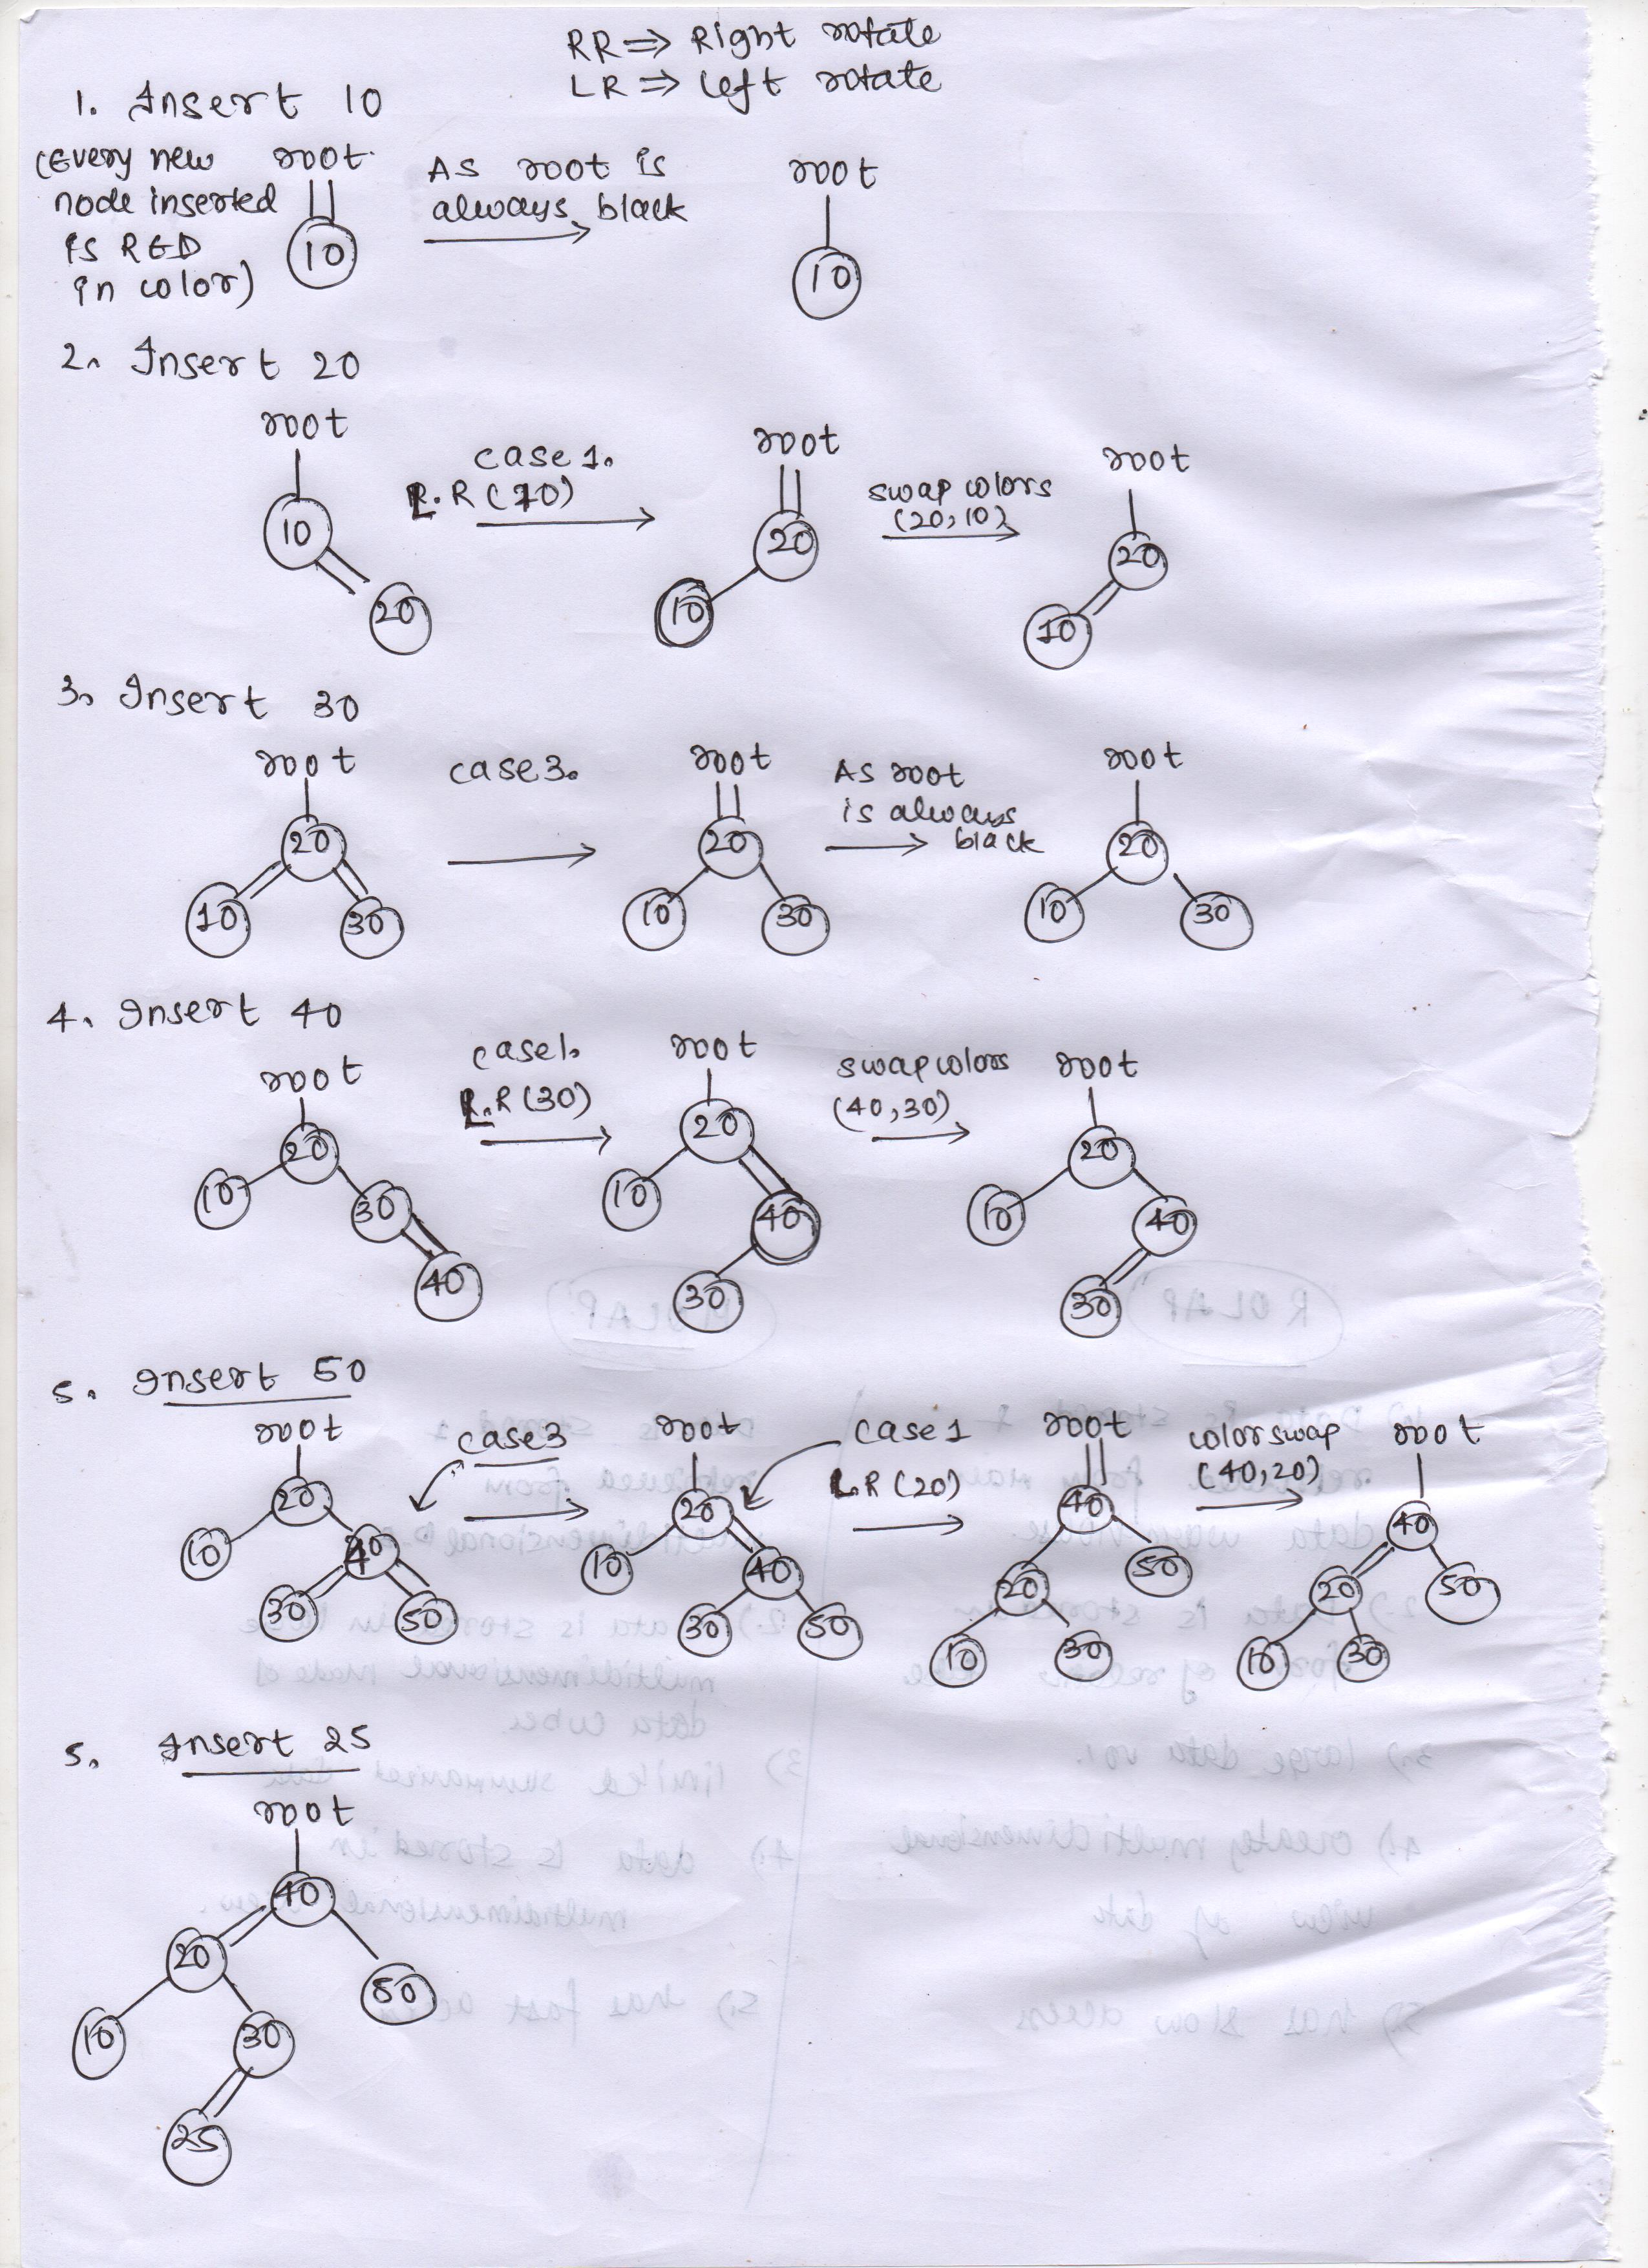 RR => Right rotate
LR => Left rotate
1. Insert 10
(Every new
node inserted
is RED
in color)
root
10
As root is
always black
root
10
2. Insert 20
root
10
20
case 1.
L.R (10)
root
20
10
swap colors
(20,10)
root
20
10
3. Insert 30
root
20
10 30
case 3.
root
20
10 30
As root
is always
black
root
20
10 30
4. Insert 40
root
20
10 30
40
case 1.
L.R (30)
root
20
10 40
30
swap colors
(40,30)
root
20
10 40
30
5. Insert 50
root
20
10 40
30 50
case 3
root
20
10 40
30 50
case 1
L.R (20)
root
40
20 50
10 30
color swap
(40,20)
root
40
20 50
10 30
5. Insert 25
root
40
20 50
10 30
25